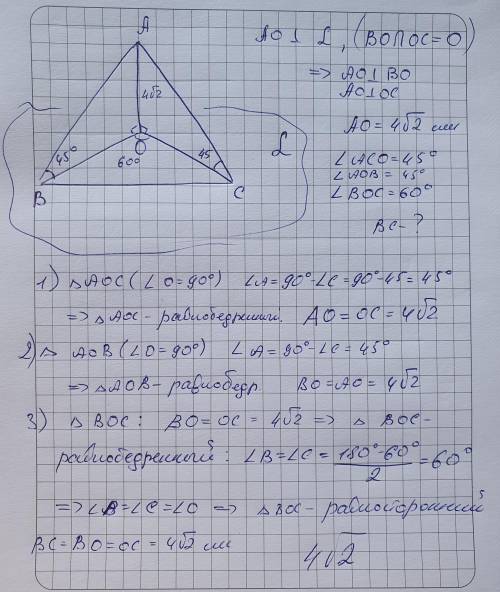 A
AO⊥ L, (BO∩OC=O)
=> AO⊥BO
AO⊥OC
4√2
AO=4√2 см
45° O 45 L
60°
∠ACO=45°
∠AOB=45°
∠BOC=60°
B C
BC-?
1) △AOC (∠O=90°) ∠A=90°-∠C=90°-45=45°
=> △AOC - равнобедренный. AO=OC=4√2
2) △ AOB (∠O=90°) ∠A=90°-∠C=45°
=> △AOB - равнобедр. BO=AO=4√2
3) △ BOC: BO=OC=4√2 => △ BOC-
равнобедренный: ∠B=∠C= (180°-60°)/2 =60°
=> ∠B=∠C=∠O => △BOC - равносторонний
BC=BO=OC=4√2 см
4√2